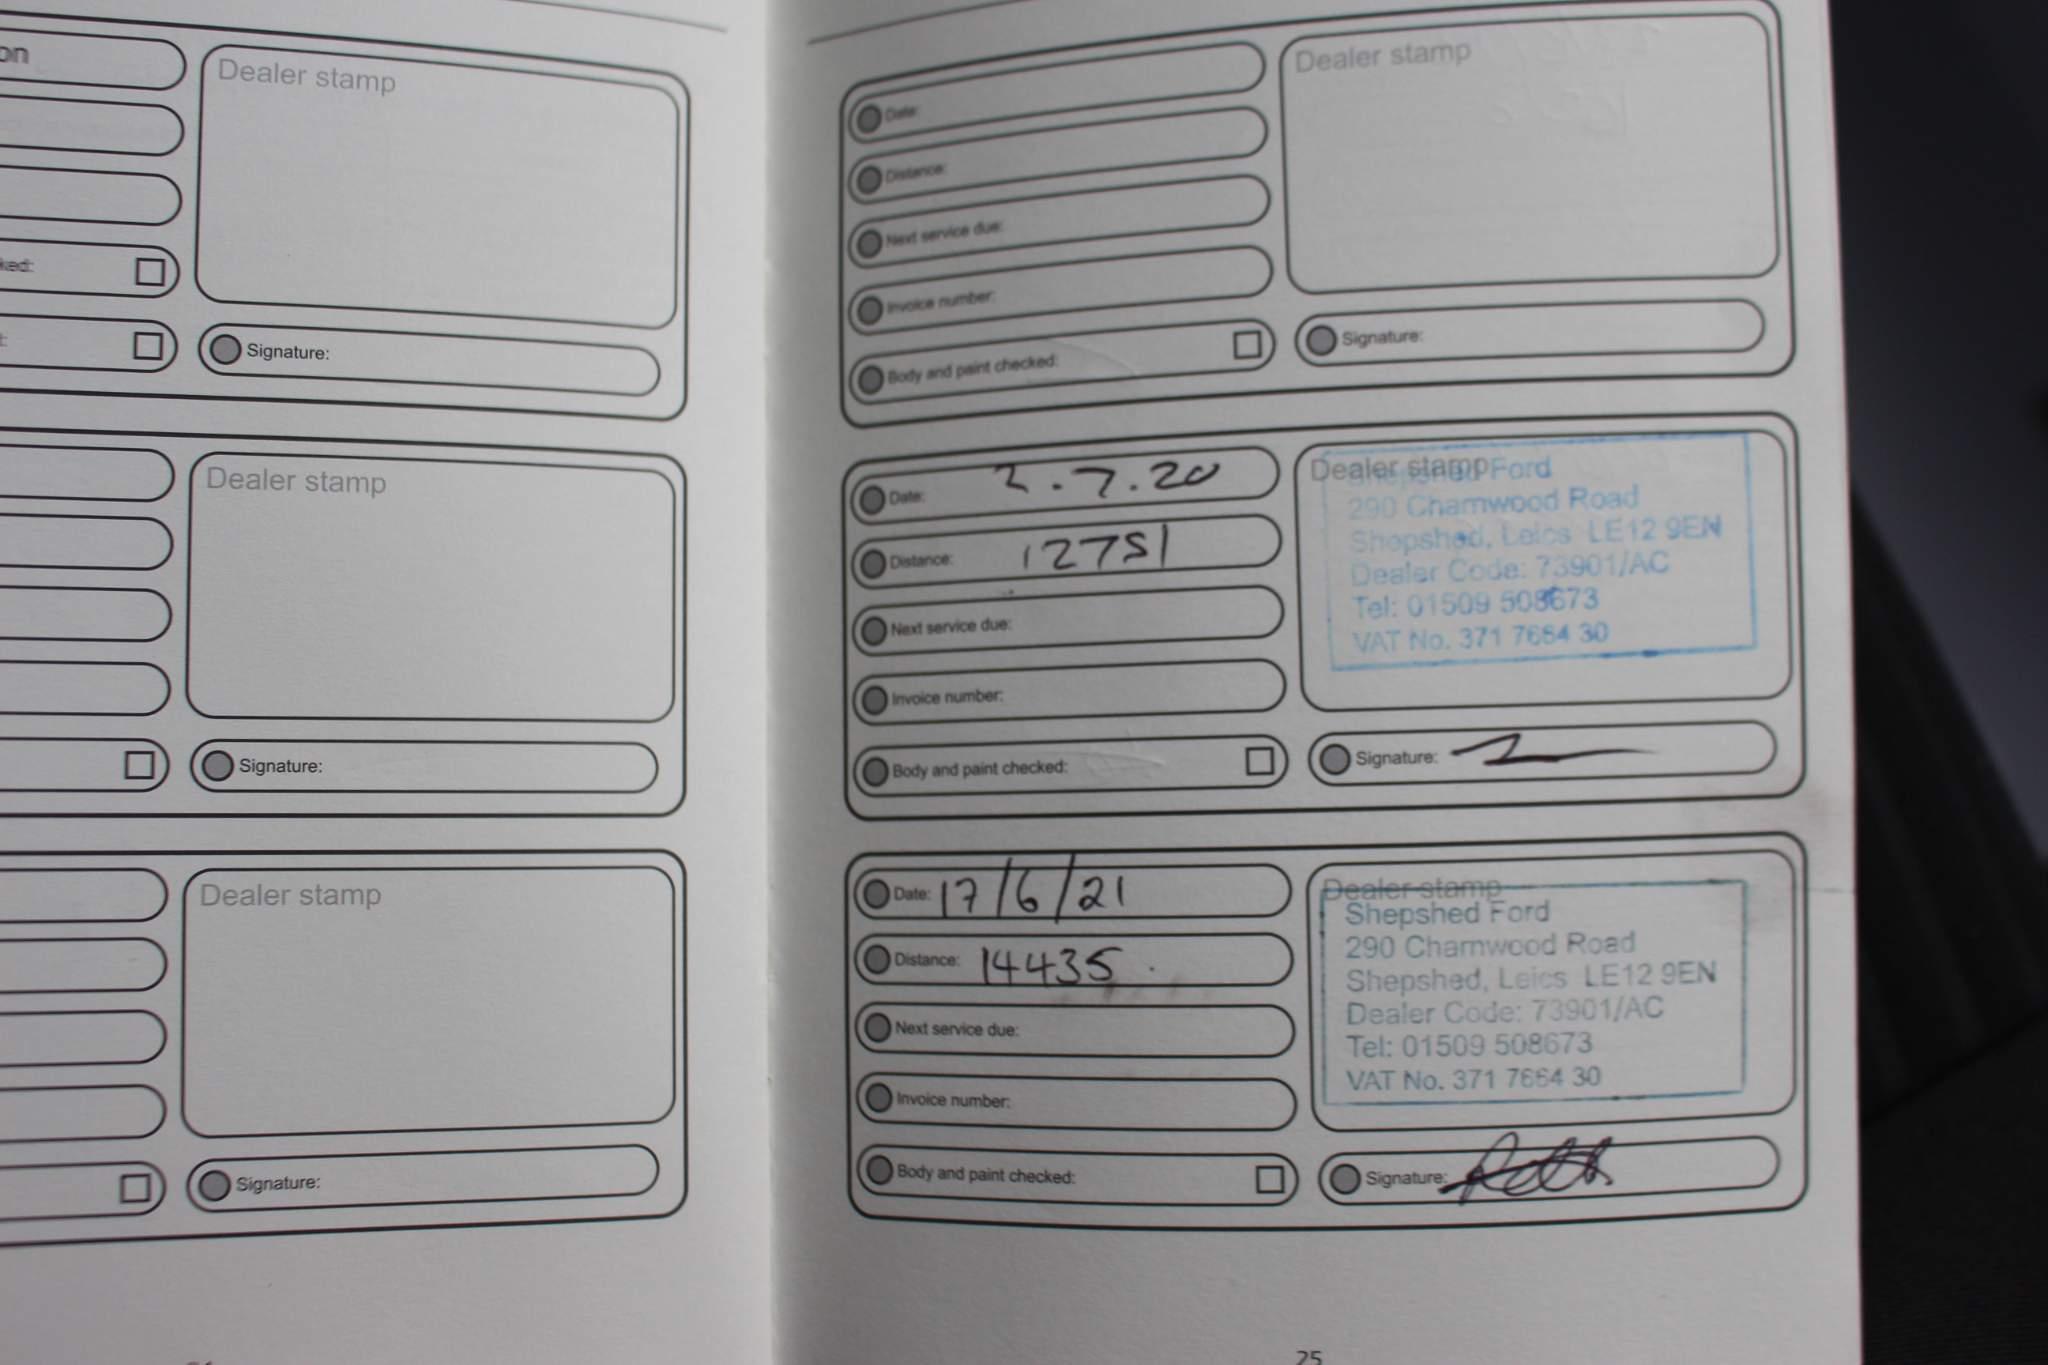 on
Dealer stamp
ked:
Signature:
Dealer stamp
Signature:
Dealer stamp
Signature:
Date:
Distance:
Next service due:
Invoice number:
Body and paint checked:
Dealer stamp
Signature:
Date: 2.7.20
Distance: 12751
Next service due:
Invoice number:
Body and paint checked:
Dealer stamp
Shepshed Ford
290 Charnwood Road
Shepshed, Leics LE12 9EN
Dealer Code: 73901/AC
Tel: 01509 508673
VAT No. 371 7664 30
Signature:
Date: 17/6/21
Distance: 14435
Next service due:
Invoice number:
Body and paint checked:
Dealer stamp
Shepshed Ford
290 Charnwood Road
Shepshed, Leics LE12 9EN
Dealer Code: 73901/AC
Tel: 01509 508673
VAT No. 371 7664 30
Signature:
25